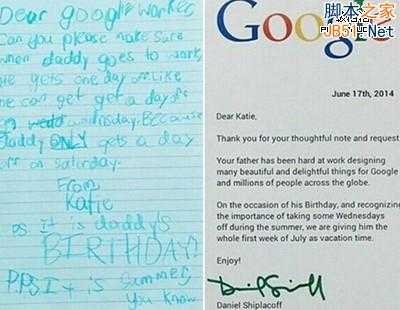 Dear google worker,
Can you please make sure
when daddy goes to work,
he gets one day off. Like
he can get get a day off
on wednsday. Because
daddy ONLY gets a day
off on saturday.
From,
Katie
It is daddy's
BIRTHDAY!
P.P.S It is summer,
you know
Google
脚本之家
JB51.Net
June 17th, 2014
Dear Katie,
Thank you for your thoughtful note and request
Your father has been hard at work designing
many beautiful and delightful things for Google
and millions of people across the globe.
On the occasion of his Birthday, and recognizing
the importance of taking some Wednesdays
off during the summer, we are giving him the
whole first week of July as vacation time.
Enjoy!
Daniel Shiplacoff